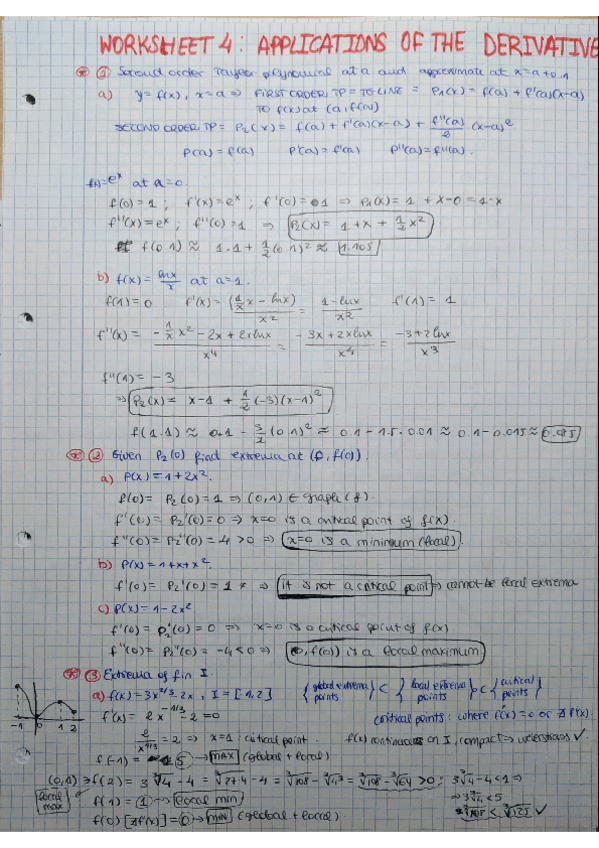 WORKSHEET 4: APPLICATIONS OF THE DERIVATIVE
① Second order Taylor polynomial at a and approximate at x=a+0.1
a) y=f(x), x=a ⇒ FIRST ORDER TP = TO LINE = P₁(x) = f(a) + f'(a)(x-a)
TO f(x) at (a, f(a))
SECOND ORDER TP = P₂(x) = f(a) + f'(a)(x-a) + f''(a)/2 (x-a)²
P(a) = f(a) P'(a) = f'(a) P''(a) = f''(a).
f(x)=eˣ at a=0.
f(0)=1 ; f'(x)=eˣ ; f'(0)=1 ⇒ P₁(x)= 1 + x-0 = 1-x
f''(x)=eˣ ; f''(0)=1 ⇒ P₂(x) = 1+x + 1/2 x²
f(0.1) ≈ 1.1 + 1/2 (0.1)² ≈ 1.105
b) f(x) = lnx/x at a=1.
f(1)=0 f'(x) = (1/x x - lnx)/x² = 1-lnx/x² f'(1) = 1
f''(x) = -1/x x² - 2x + 2xlnx/x⁴ = -3x + 2xlnx/x⁴ = -3+2lnx/x³
f''(1) = -3
⇒ P₂(x) = x-1 + 1/2 (-3)(x-1)²
f(1.1) ≈ 0.1 - 3/2 (0.1)² ≈ 0.1 - 1.5·0.01 ≈ 0.1-0.015 ≈ 0.085
② Given P₂(0) find extrema at (0, f(0)).
a) P(x) = 1+2x².
f(0) = P₂(0) = 1 ⇒ (0,1) ∈ graph(f).
f'(0) = P₂'(0) = 0 ⇒ x=0 is a critical point of f(x).
f''(0) = P₂''(0) = 4 > 0 ⇒ x=0 is a minimum (local).
b) P(x) = 1+x+x².
f'(0) = P₂'(0) = 1 ⇒ it is not a critical point ⇒ cannot be local extrema
c) P(x) = 1-2x²
f'(0) = P₂'(0) = 0 ⇒ x=0 is a critical point of f(x).
f''(0) = P₂''(0) = -4 < 0 ⇒ (0, f(0)) is a local maximum
③ Extrema of f in I.
a) f(x) = 3x^2/3 - 2x, I = [-1,2] {global extrema points} ⊂ {local extrema points} ⊂ {critical points}
f'(x) = 2x^-1/3 - 2 = 0 critical points: where f'(x)=0 or ∄ f'(x).
2/x^1/3 = 2 ⇒ x=1: critical point. f(x) continuous on I, compact ⇒ ✓.
f(-1) = 5 → MAX (global + local)
-1 0 1 2
(0,1) ⇒ f(2) = 3 ∛4 - 4 = ∛27·4 - 4 = ∛108 - ∛4³ = ∛108 - ∛64 > 0 ; 3∛4 - 4 < 1 ⇒
local max f(1) = 1 → local min ⇒ 3∛4 < 5
f(0) [∄ f'(x)] = 0 → MIN (global + local). ∛108 < ∛125 ✓